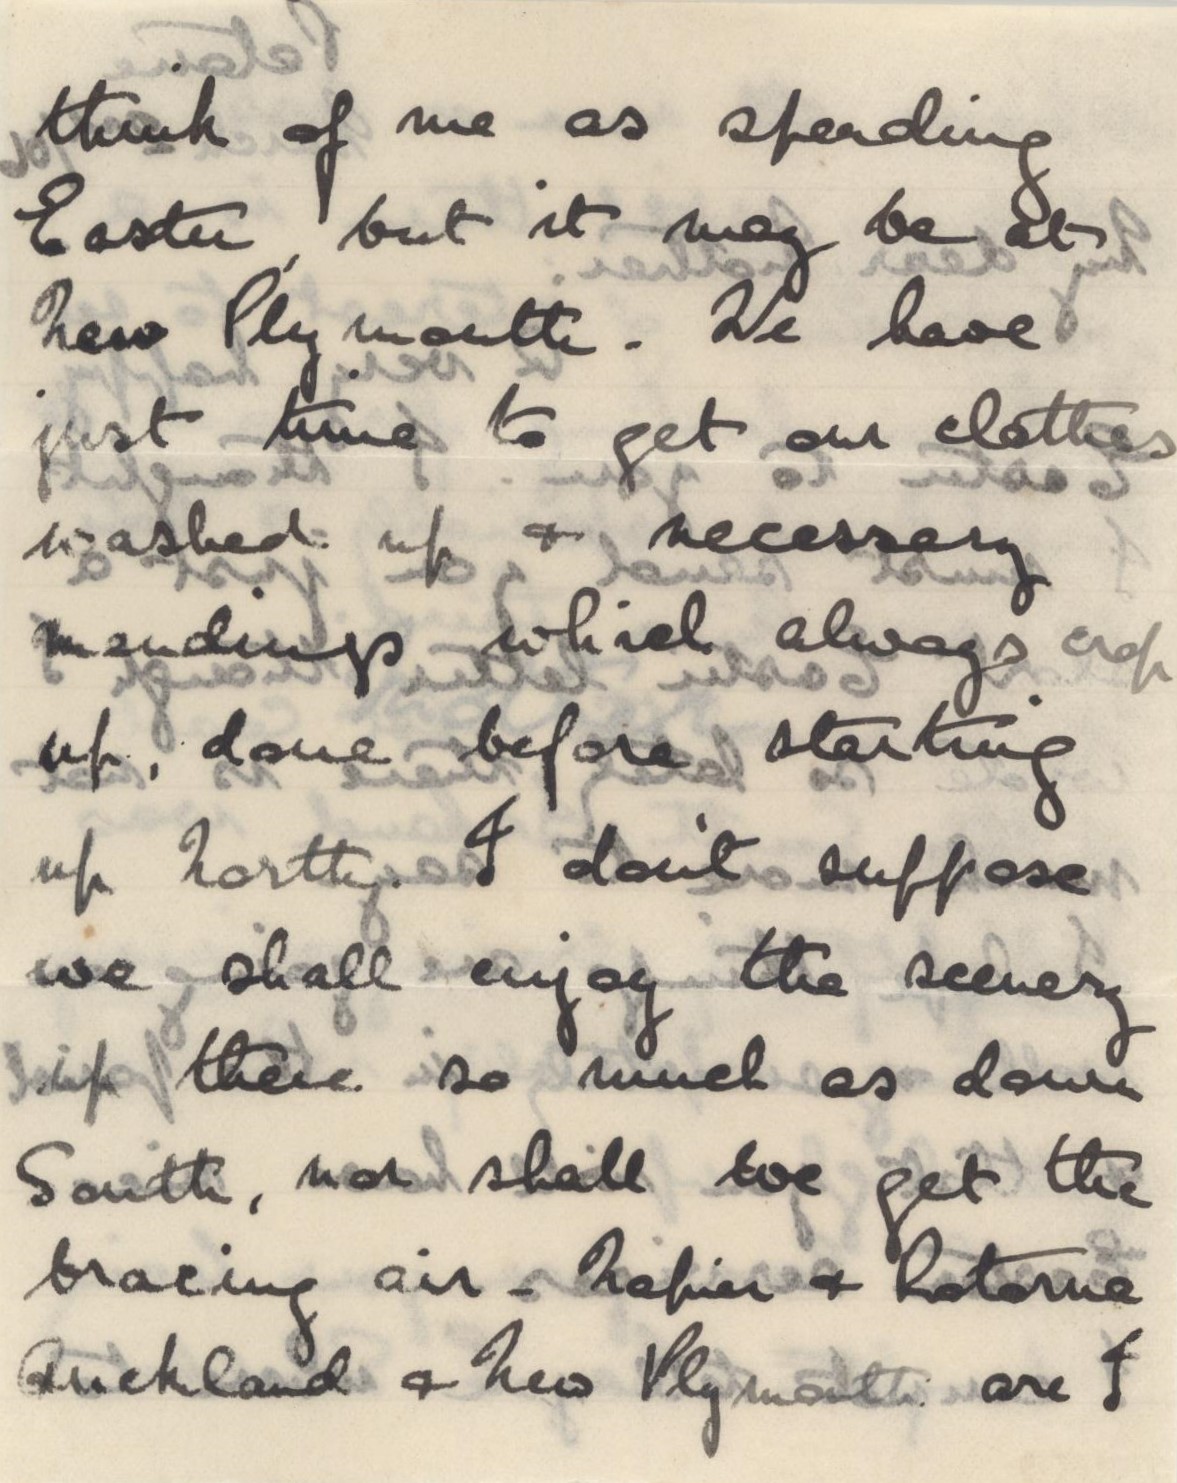 think of me as spending
Easter, but it may be at
New Plymouth. We have
just time to get our clothes
washed up & necessary
mendings which always crop
up, done before starting
up North. I don't suppose
we shall enjoy the scenery
up there so much as down
South, nor shall we get the
bracing air - Napier & Rotorua
Auckland & New Plymouth are I